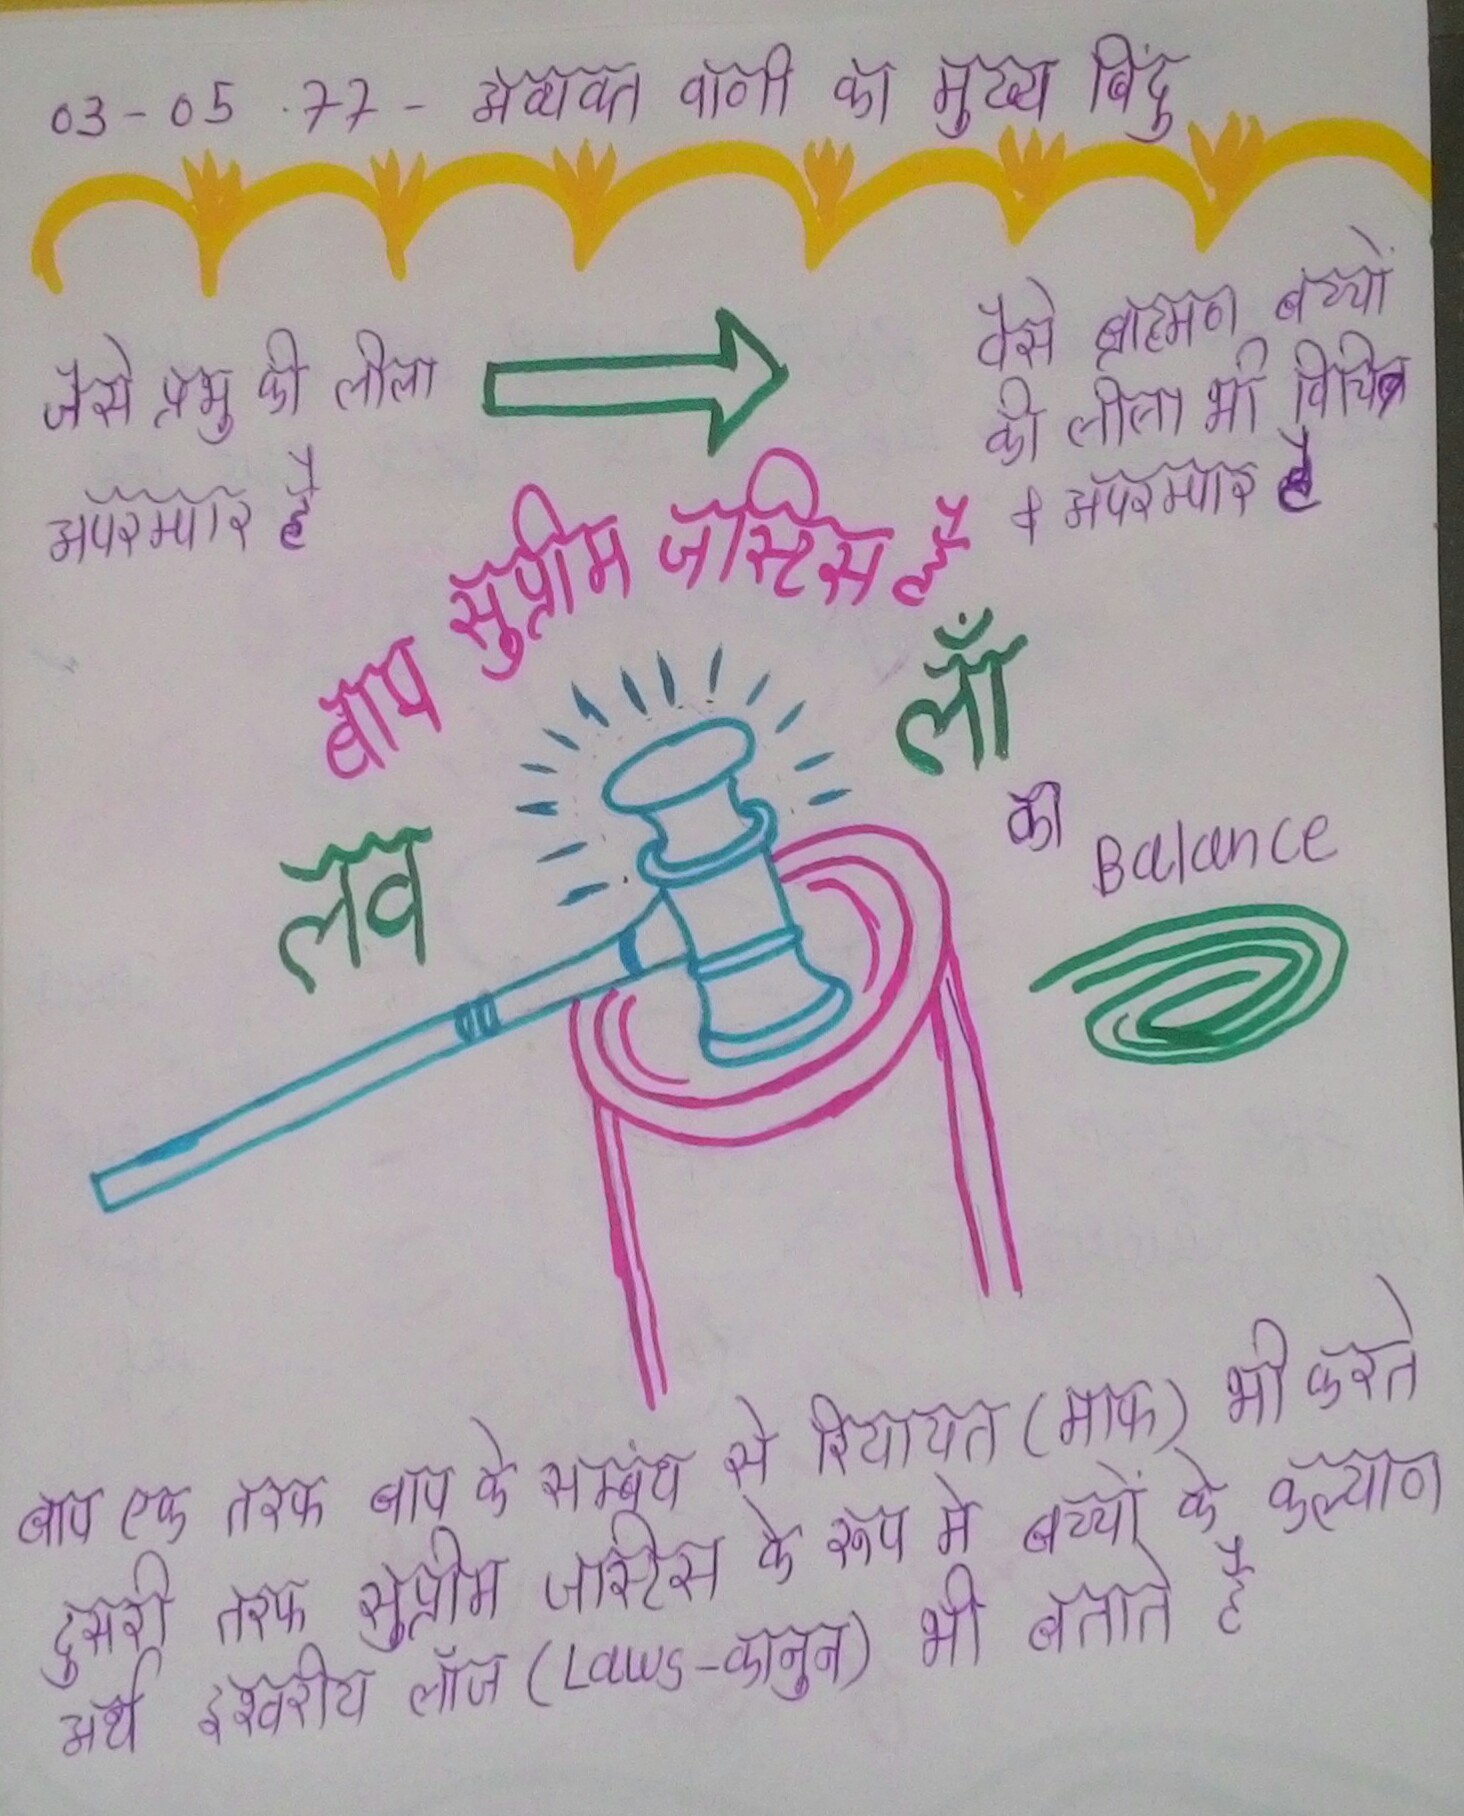 03-05.77 - अव्यक्त वाणी का मुख्य बिंदु
जैसे प्रभु की लीला
अपरम्पार है
वैसे ब्राह्मण बच्चों
की लीला भी विचित्र
& अपरम्पार है
बाप सुप्रीम जस्टिस है
लव
लॉ
की Balance
बाप एक तरफ बाप के सम्बंध से रियायत (माफ) भी करते
दुसरी तरफ सुप्रीम जस्टिस के रूप मे बच्चों के कल्याण
अर्थ इश्वरीय लॉज (Laws-कानुन) भी बताते है